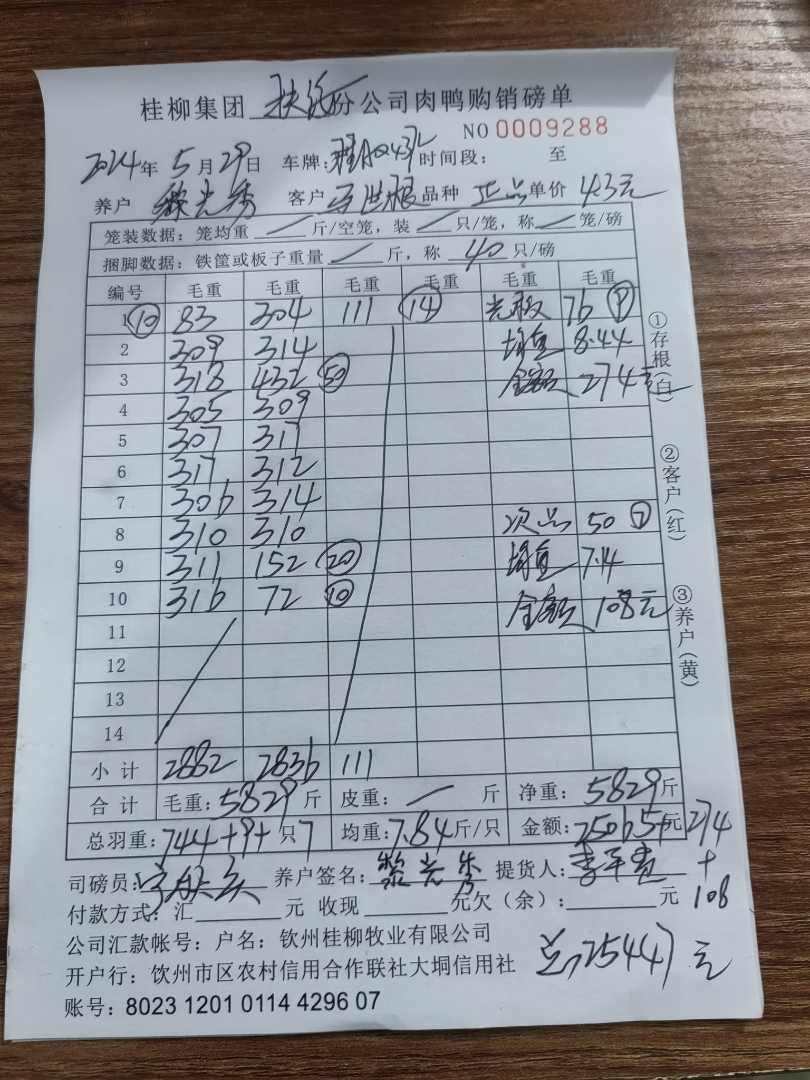 桂柳集团 扶绥 份公司肉鸭购销磅单
NO 0009288
2024年 5月29日 车牌: 时间段: 至
养户 黎光秀 客户 品种 正品 单价 4.3元
笼装数据: 笼均重 / 斤/空笼, 装 / 只/笼, 称 / 笼/磅
捆脚数据: 铁筐或板子重量 / 斤, 称 40 只/磅
编号 毛重 毛重 毛重 毛重 毛重 毛重
1 ⑩ 83 304 111 ⑭ 76 ⑨
2 309 314 均重 8.44
3 318 432 ㊿ 金额 274元
4 305 309
5 307 317
6 317 312
7 306 314
8 310 310 次品 50 ⑦
9 311 152 ⑳ 均重 7.14
10 316 72 ⑩ 金额 108元
11
12
13
14
小计 2882 2836 111
合计 毛重: 5829 斤 皮重: / 斤 净重: 5829 斤
总羽重: 744+9+ 只 7 均重: 7.84 斤/只 金额: 25065+ 元 274
司磅员: 养户签名: 黎光秀 提货人: +
付款方式: 汇 元 收现 元欠(余): 元 108
公司汇款帐号: 户名: 钦州桂柳牧业有限公司
开户行: 钦州市区农村信用合作联社大垌信用社 总, 25447元
账号: 8023 1201 0114 4296 07
①存根(白)
②客户(红)
③养户(黄)